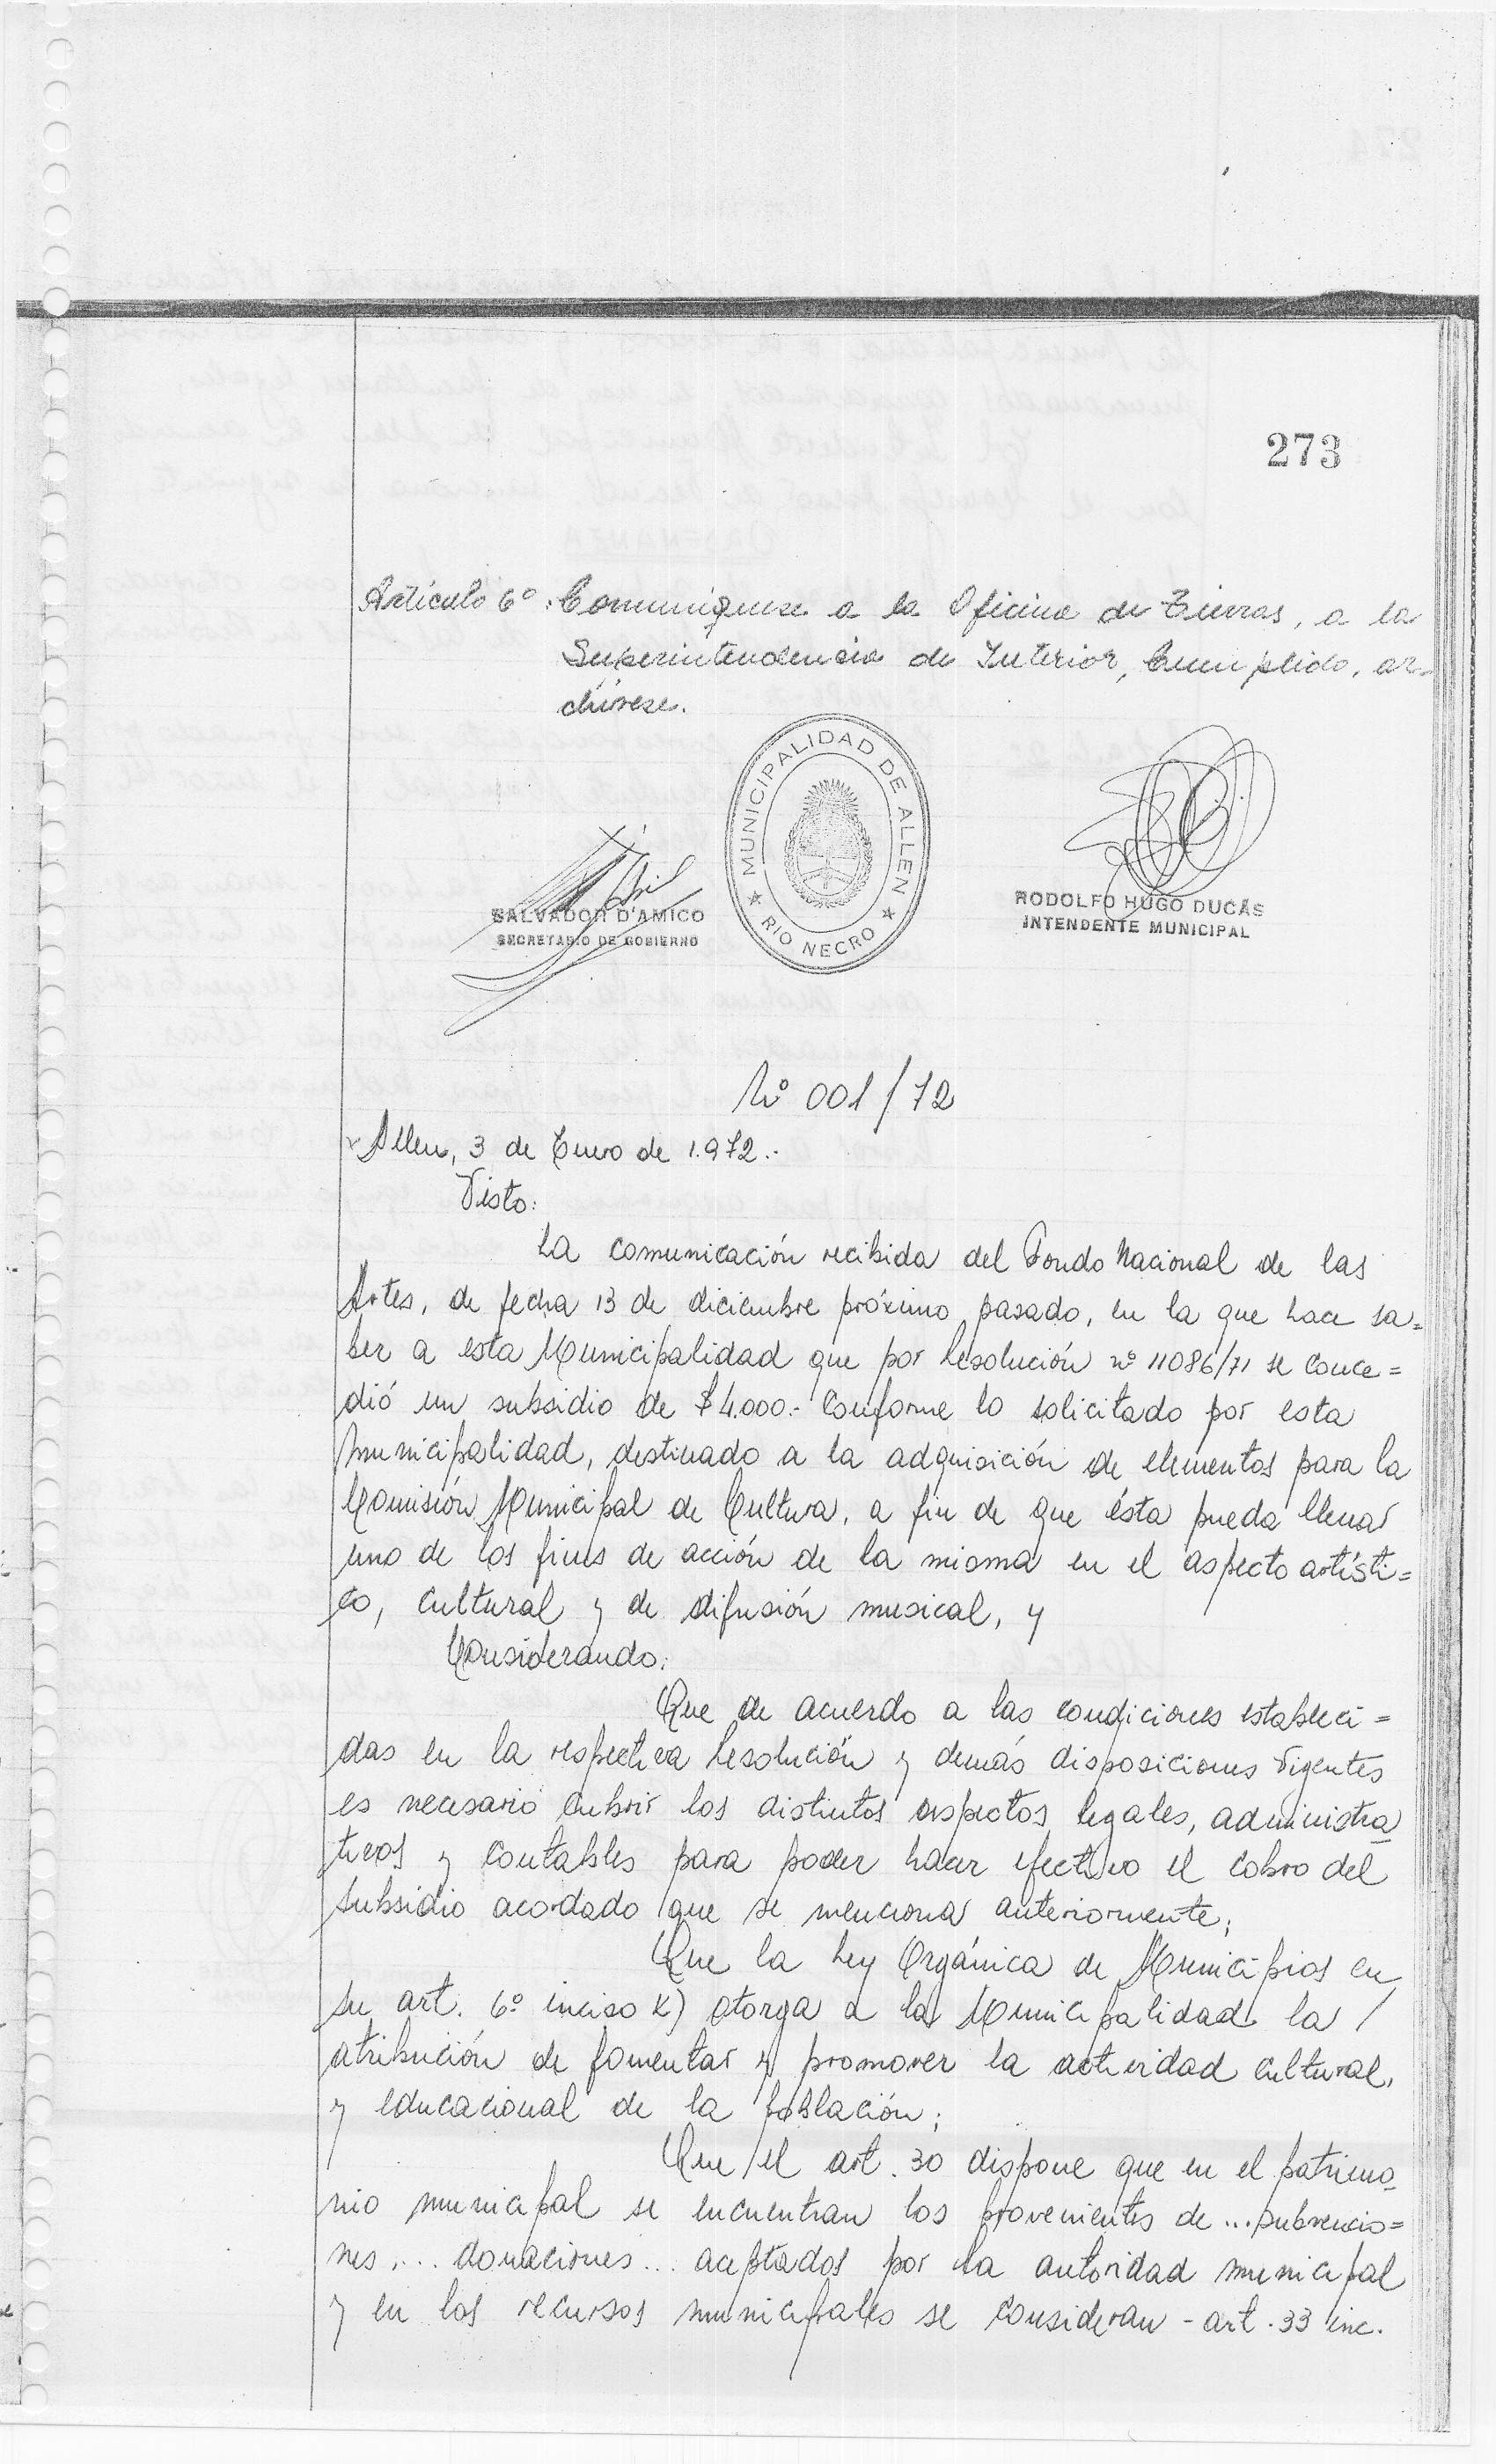 273
Artículo 6º: Comuníquese a la Oficina de Tierras, a la
Superintendencia de Interior, Cumplido, ar-
chívese.
MUNICIPALIDAD DE ALLEN
RIO NECRO
SALVADOR D'AMICO
SECRETARIO DE GOBIERNO
RODOLFO HUGO DUCÁS
INTENDENTE MUNICIPAL
Nº 001/72
Allen, 3 de Enero de 1.972.-
Visto:
La comunicación recibida del Fondo Nacional de las
Artes, de fecha 13 de diciembre próximo pasado, en la que hace sa=
ber a esta Municipalidad que por Resolución nº 11086/71 se conce=
dió un subsidio de $4.000.- conforme lo solicitado por esta
Municipalidad, destinado a la adquisición de elementos para la
Comisión Municipal de Cultura, a fin de que ésta pueda llenar
uno de los fines de acción de la misma en el aspecto artísti=
co, cultural y de difusión musical, y
Considerando:
Que de acuerdo a las condiciones estableci=
das en la respectiva Resolución y demás disposiciones vigentes
es necesario cubrir los distintos aspectos legales, administra
tivos y contables para poder hacer efectivo el cobro del
subsidio acordado que se menciona anteriormente;
Que la Ley Orgánica de Municipios en
su art. 6º inciso K) otorga a la Municipalidad la /
atribución de fomentar y promover la actividad cultural,
y educacional de la población;
Que el art. 30 dispone que en el patrimo
nio municipal se encuentran los provenientes de ... subvencio=
nes, ... donaciones ... aceptados por la autoridad municipal
y en los recursos municipales se consideran - art. 33 inc.